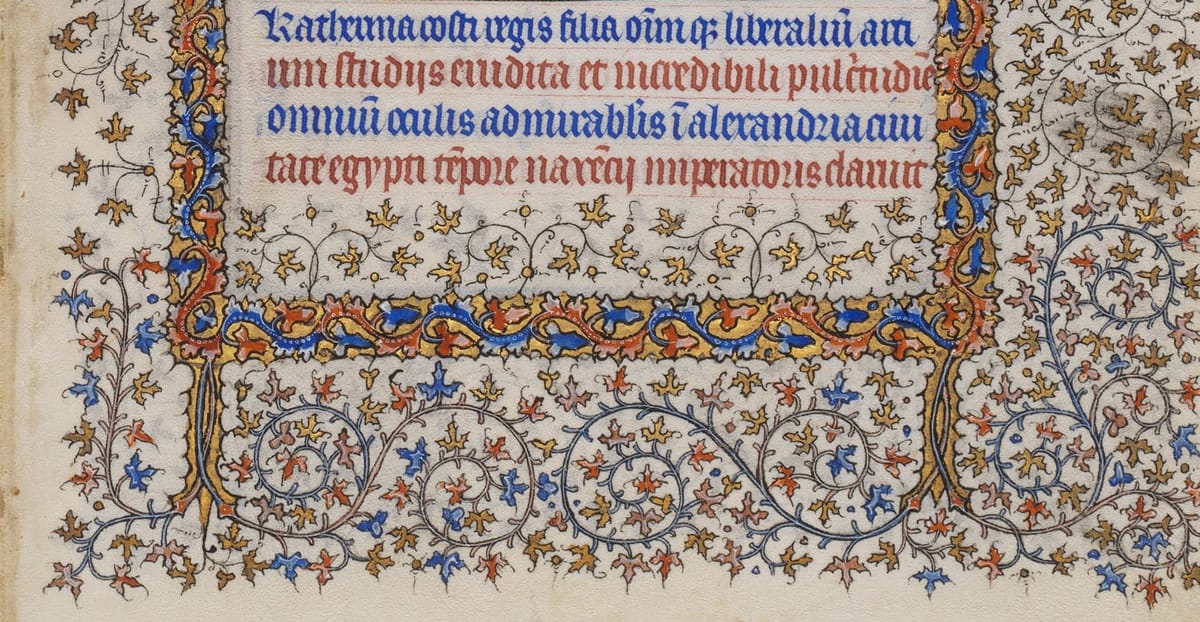 Katherina costi regis filia oīm qꝫ liberaliū arti
um studijs erudita et incredibili pulc̄tudīe
omniū oculis admirabl̄is ī alexandria ciui
tate egypti tēpore maxēcij imperatoris claruit